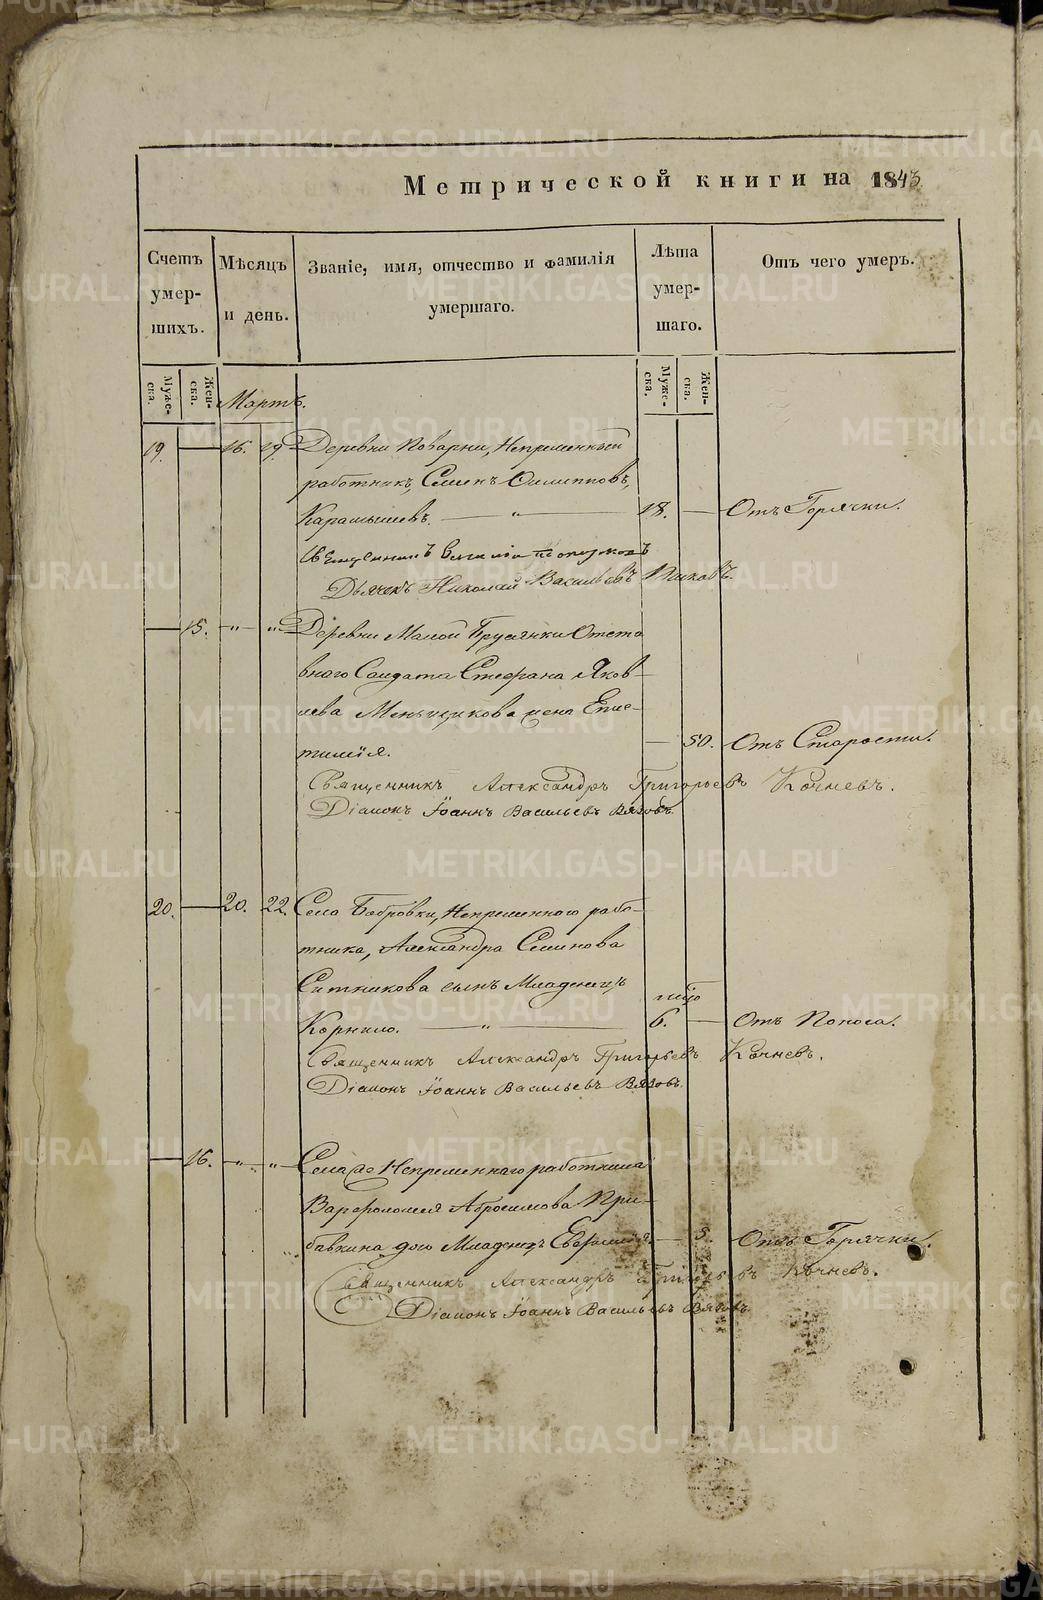 Метрической книги на 1843
Счетъ умер- шихъ.
Мѣсяцъ и день.
Званіе, имя, отчество и фамилія умершаго.
Лѣта умер- шаго.
Отъ чего умеръ.
Муже- ска.
Жен- ска.
Муже- ска.
Жен- ска.
Мартъ.
19. — 16. 19. Деревни Поварни, Непременный
работникъ, Семенъ Филипповъ,
Карамышевъ. — „ — 18. — Отъ Горячки.
Священникъ
Дьячекъ Николай Васильевъ
— 15. „ „ Деревни Малой Брусянки Отста
внаго Солдата Стефана Яков-
лева Меньщикова жена Епис-
тимія. — 50. Отъ Старости.
Священникъ Александръ Григорьевъ Кочневъ.
Діаконъ Іоаннъ Васильевъ Вязовъ.
20. — 20. 22. Села Бобровки, Непременнаго рабо-
тника, Александра Семинова
Ситникова сынъ Младенецъ
Корнило. — „ — 6. — Отъ Поноса.
Священникъ Александръ Григорьевъ Кочневъ.
Діаконъ Іоаннъ Васильевъ Вязовъ.
— 16. „ „ Села Непременнаго работника
Варфоломея Абросимова При-
бавкина дочь Младенецъ Евфросинія — 5. Отъ Горячки.
Священникъ Александръ Григорьевъ Кочневъ.
Діаконъ Іоаннъ Васильевъ Вязовъ.
METRIKI.GASO-URAL.RU